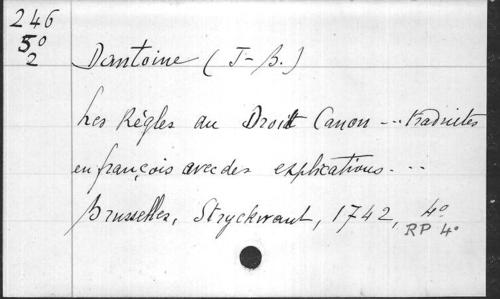 246
5º
2
Dantoine (J-B.)
Les Règles du Droit Canon --- traduites
en françois avec des explications. ---
Brusselles, Stryckwant, 1742, 4º
RP 4º